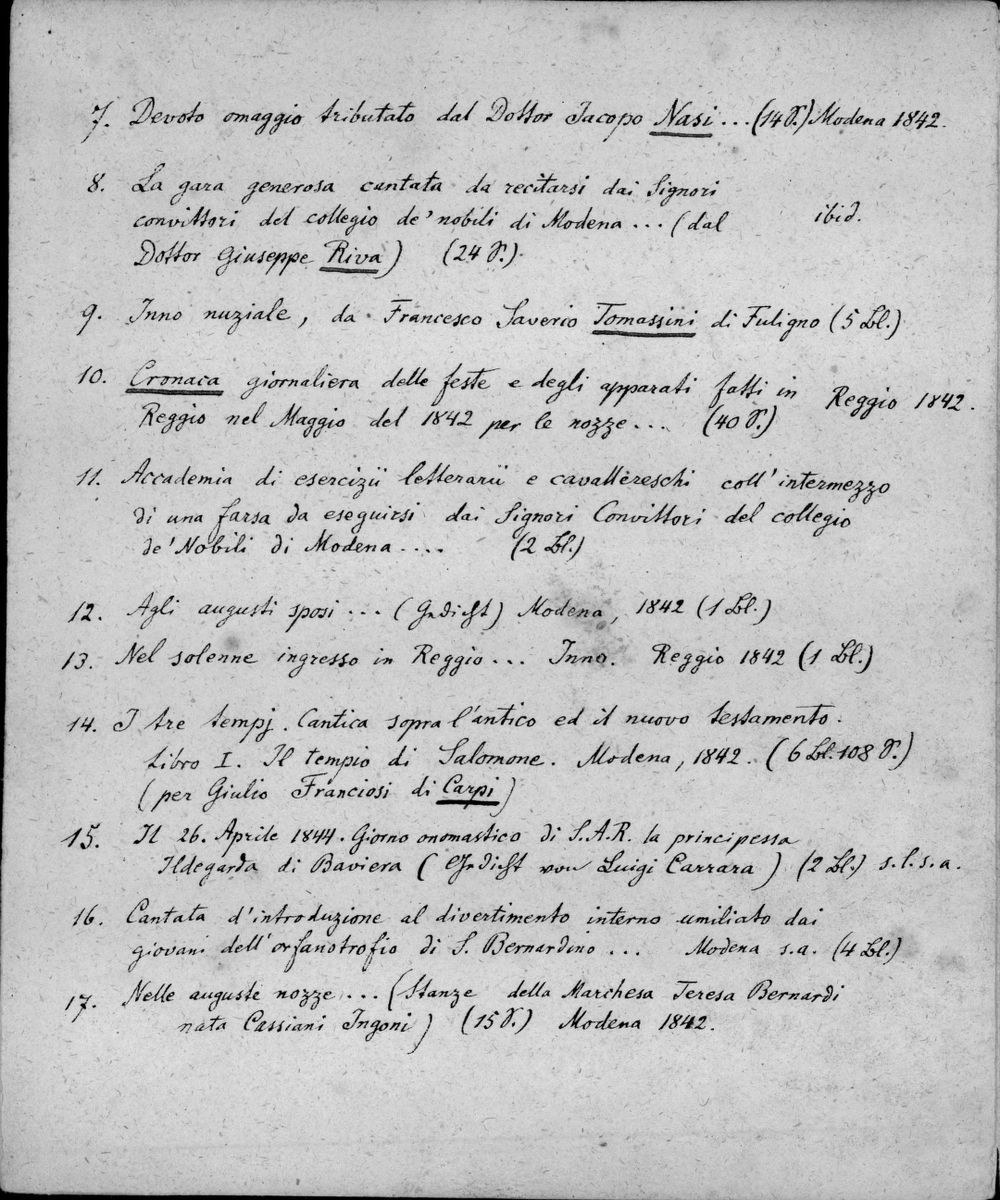 7. Devoto omaggio tributato dal Dottor Jacopo Nasi ... (14 S.) Modena 1842.
8. La gara generosa cantata da recitarsi dai Signori
convittori del collegio de' nobili di Modena ... (dal ibid.
Dottor Giuseppe Riva) (24 S.).
9. Inno nuziale, da Francesco Saverio Tomassini di Fuligno (5 Bl.)
10. Cronaca giornaliera delle feste e degli apparati fatti in Reggio 1842.
Reggio nel Maggio del 1842 per le nozze ... (40 S.)
11. Accademia di esercizii letterarii e cavallereschi coll' intermezzo
di una farsa da eseguirsi dai Signori Convittori del collegio
de' Nobili di Modena .... (2 Bl.)
12. Agli augusti sposi ... (Gedicht) Modena, 1842 (1 Bl.)
13. Nel solenne ingresso in Reggio ... Inno. Reggio 1842 (1 Bl.)
14. I tre tempj. Cantica sopra l'antico ed il nuovo testamento.
Libro I. Il tempio di Salomone. Modena, 1842. (6 Bl. 108 S.)
(per Giulio Franciosi di Carpi)
15. Il 26. Aprile 1844. Giorno onomastico di S.A.R. la principessa
Ildegarda di Baviera (Gedicht von Luigi Carrara) (2 Bl.) s.l.s.a.
16. Cantata d'introduzione al divertimento interno umiliato dai
giovani dell' orfanotrofio di S. Bernardino ... Modena s.a. (4 Bl.)
17. Nelle auguste nozze ... (Stanze della Marchesa Teresa Bernardi
nata Cassiani Ingoni) (15 S.) Modena 1842.